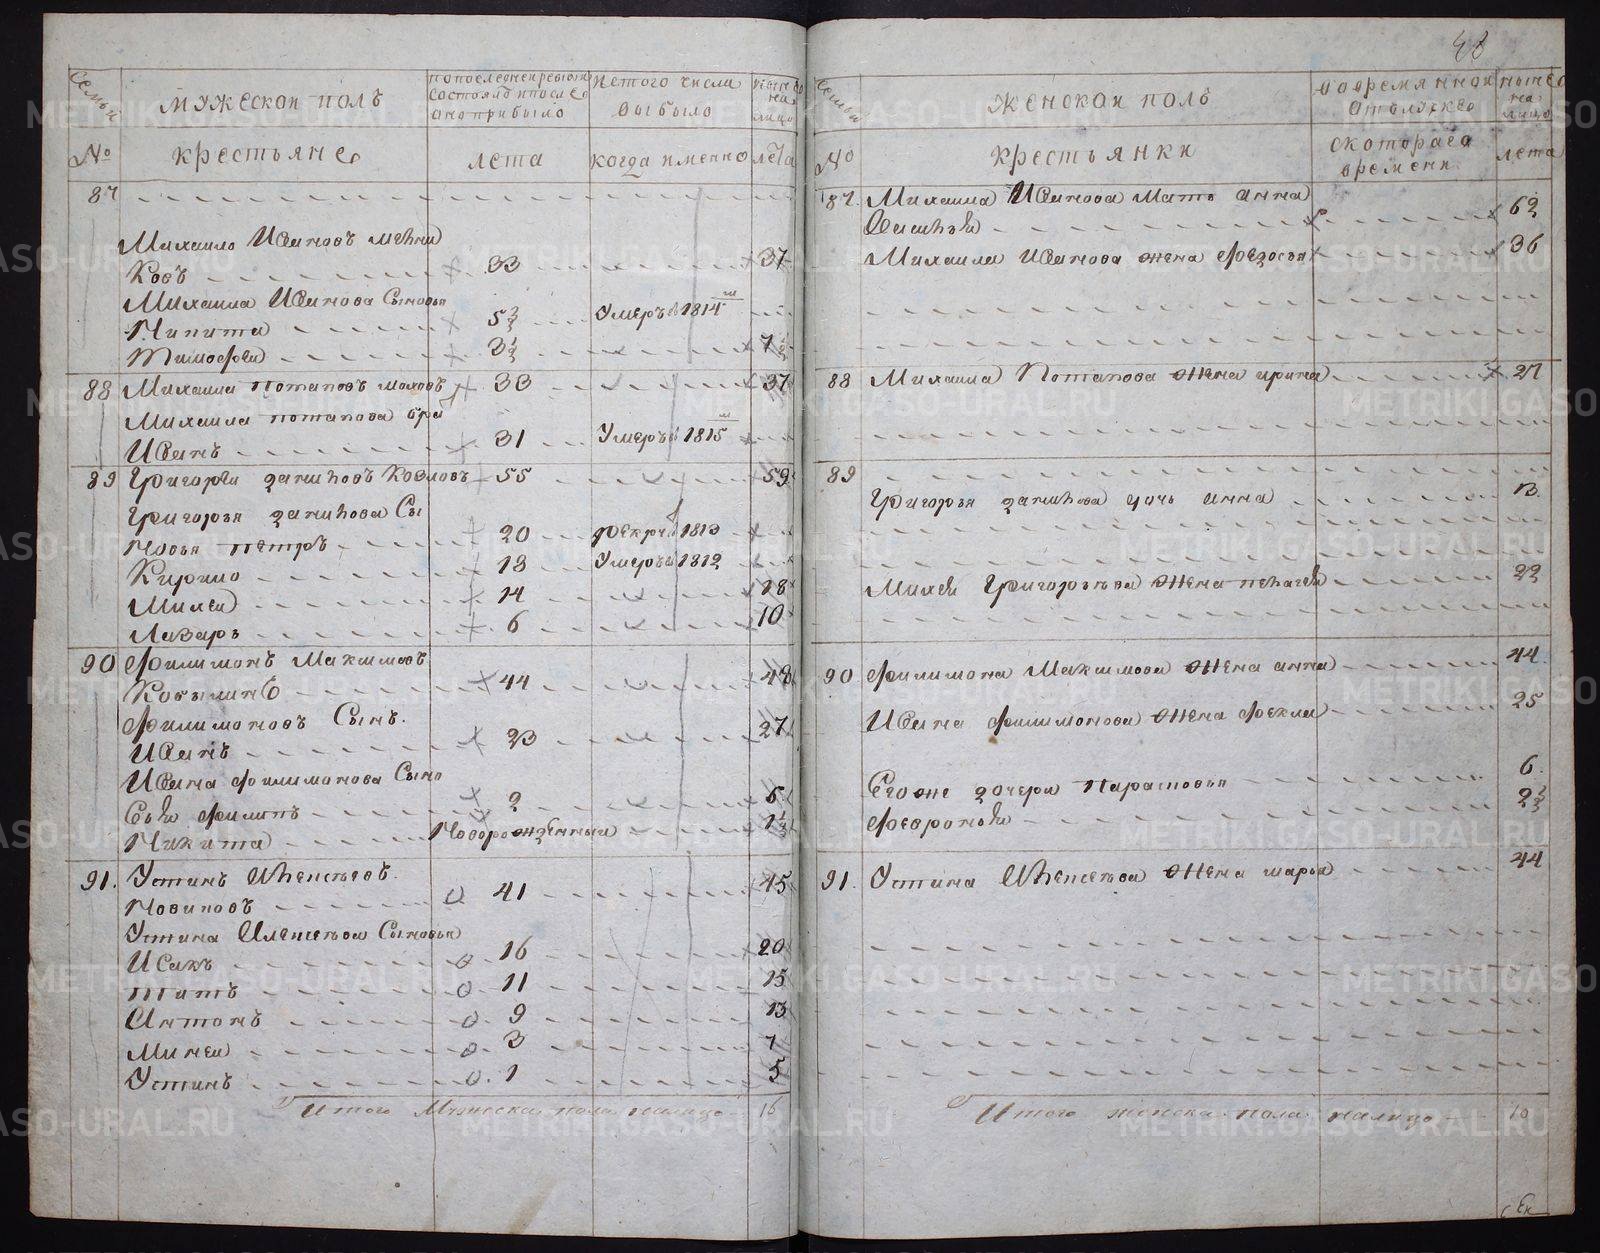 48
Семьи
МУЖЕСКОЙ ПОЛЪ
По последней ревизии
состояло и после
оной прибыло
Из того числа
выбыло
Ныне
на
лицо
№
крестьяне
лета
когда именно
лета
87
Михаило Ивановъ
ковъ 33 37
Михаила Иванова Сыновья
Никита 5 1/2 Умеръ в 1814 м
Тимофей 3 1/2 7 1/2
88 Михаила Потаповъ 33 37
Михаила потапова братъ
Иванъ 31 Умеръ в 1815 м
89 Григорей Козловъ 55 59
Григорья Сы
новья петръ 20 рекрутъ 1813
Кирило 13 Умеръ в 1812
Михей 14 18
Лазарь 6 10
90 Филимонъ Максимовъ
Ковылинъ 44 48
Филимоновъ Сынъ
Иванъ 23 27
Ивана филимонова Сыно
вьи филипъ 2 6
Никита Новорожденный 1 1/2
91. Устинъ Алексеевъ
Новиковъ 41 45
Устина Алексеева Сыновья
Исакъ 16 20
титъ 11 15
Антонъ 9 13
Миней 3 7
Устинъ 1 5
Итого Мужеска пола налицо 16
Семьи
ЖЕНСКОЙ ПОЛЪ
Во временной
отлучке
Ныне
на
лицо
№
крестьянки
с котораго
времени
лета
87. Михаила Иванова Мать анна
62
Михаила Иванова жена федосья 36
88 Михаила Потапова жена ирина 27
89
Григорья дочь анна 13
Михея Григорьева жена 22
90 Филимона Максимова жена анна 44
Ивана филимонова жена фекла 25
Его же дочери парасковья 6
феврония 2 1/2
91. Устина Алексеева жена марья 44
Итого женска пола налицо 10
METRIKI.GASO-URAL.RU